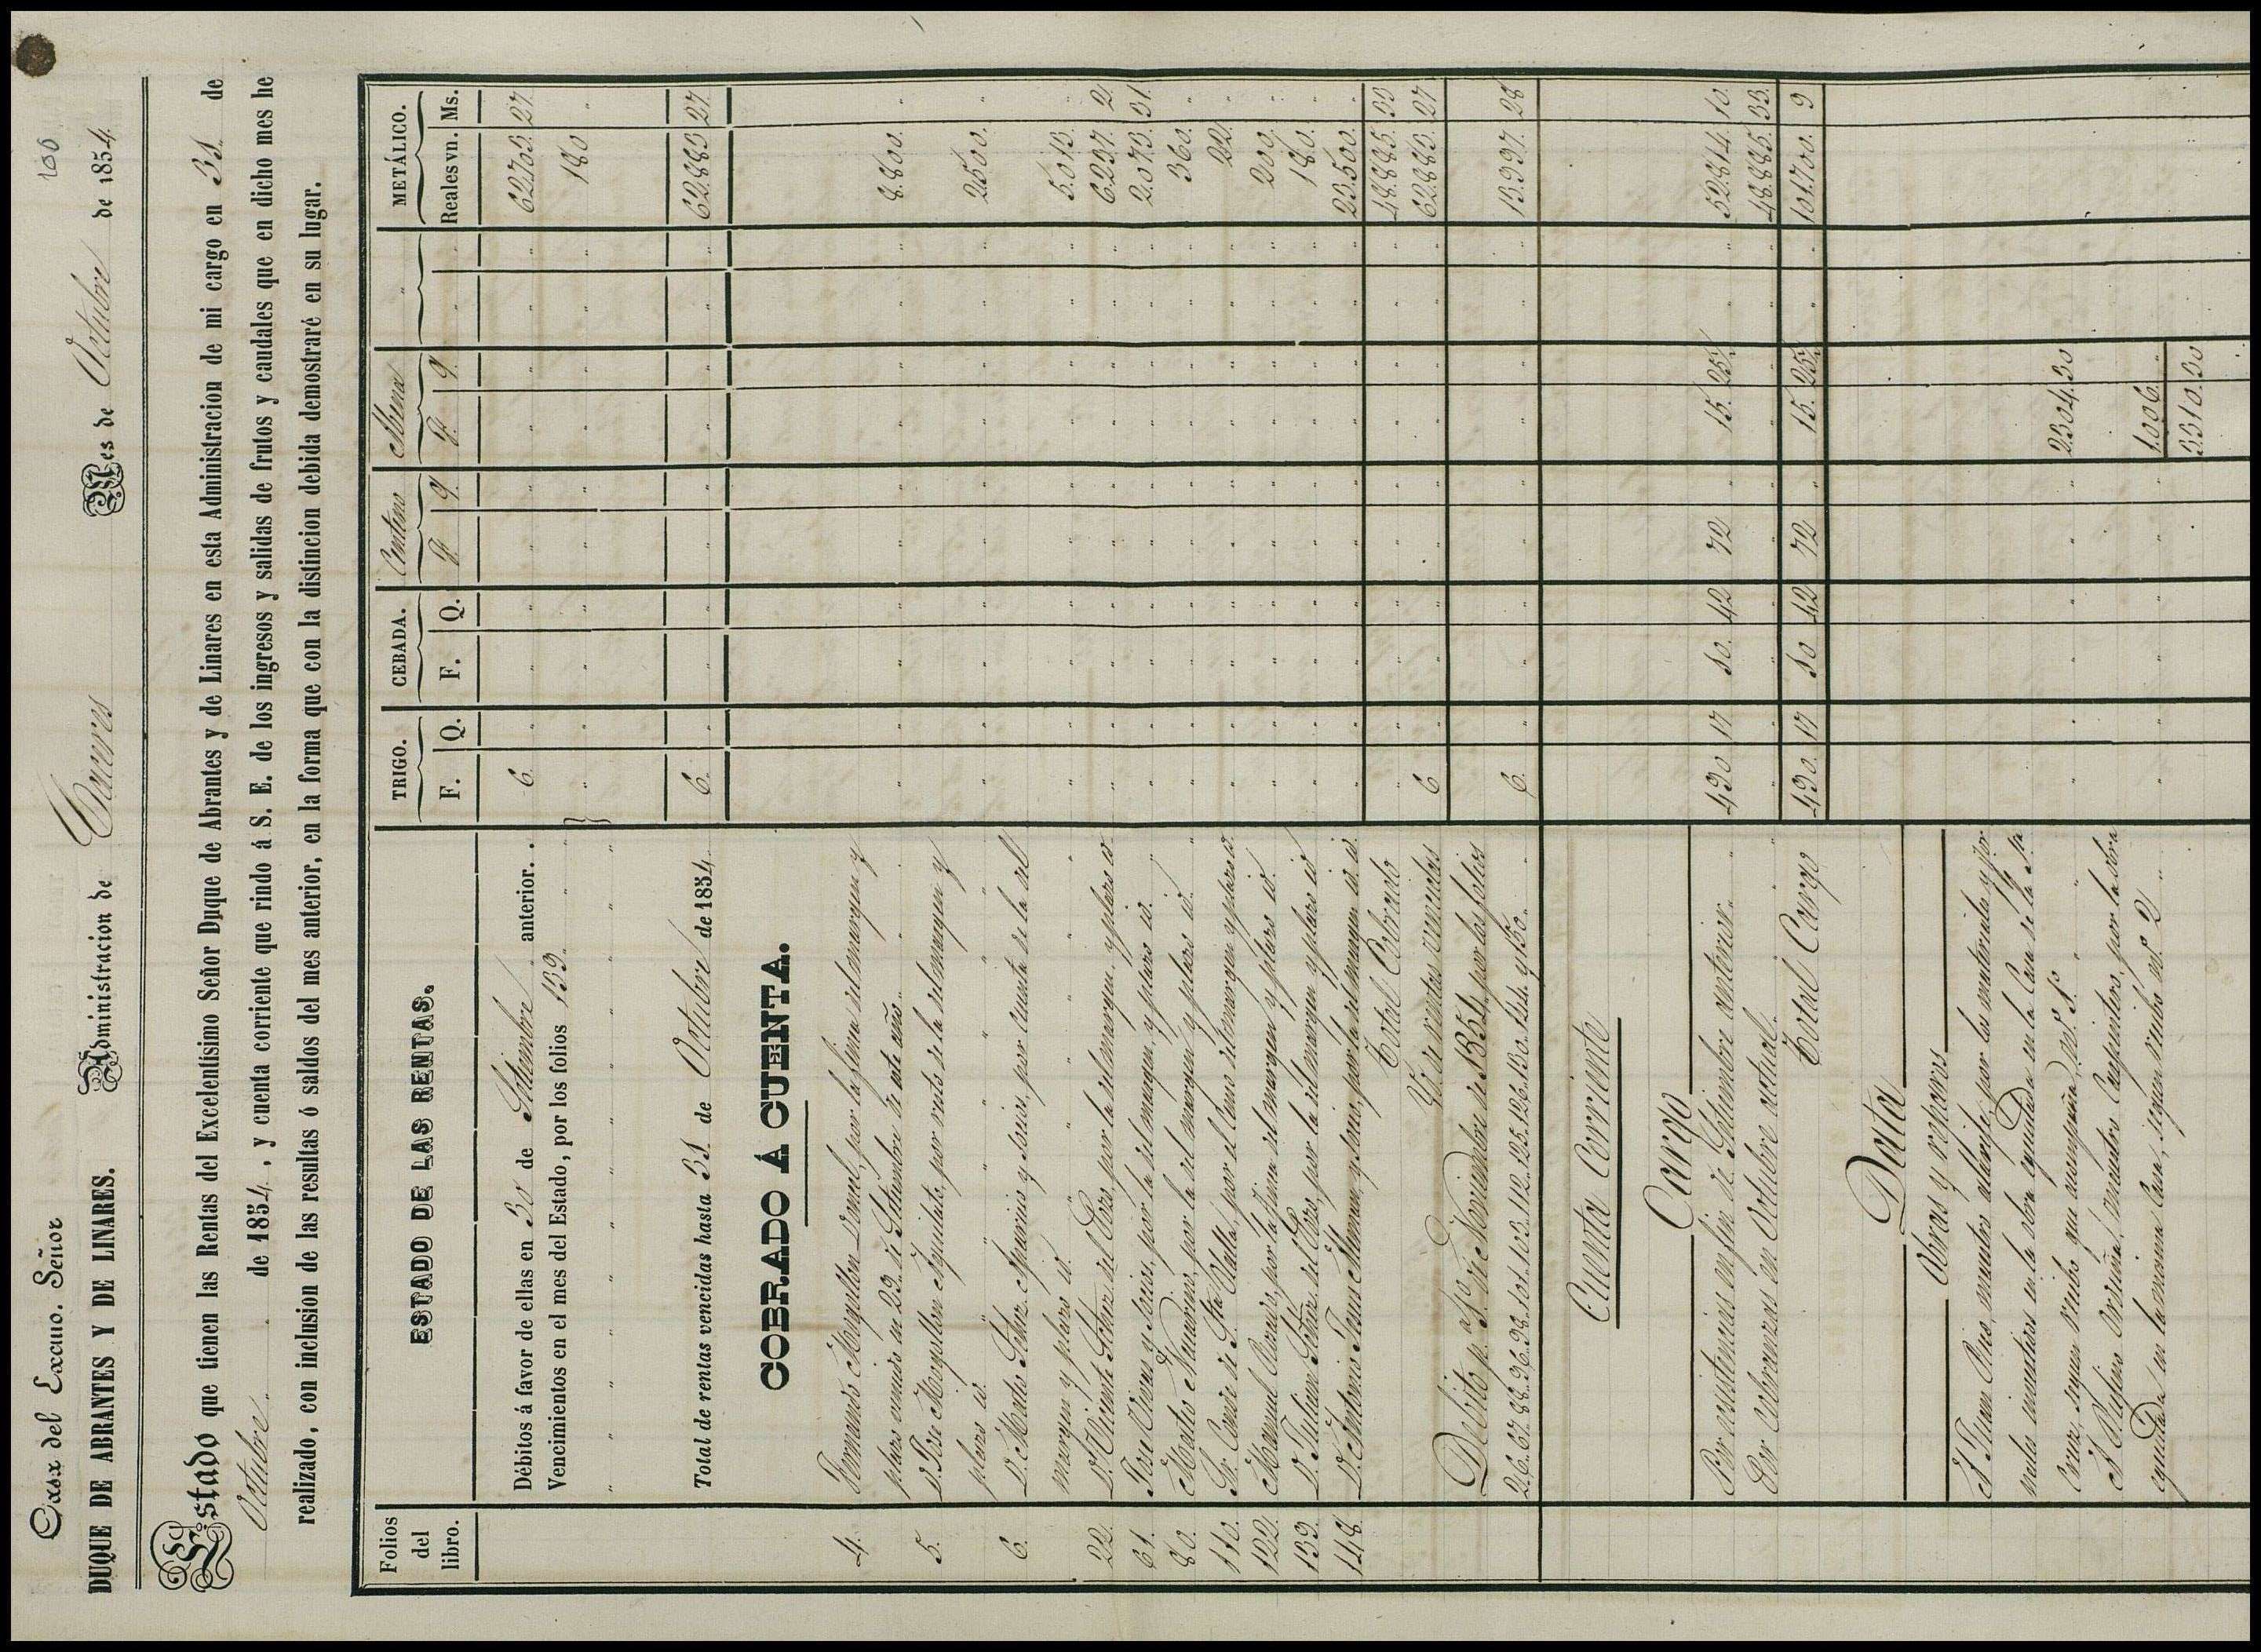 100
Casa del Excmo. Señor
DUQUE DE ABRANTES Y DE LINARES. Administracion de Caceres Mes de Octubre de 1854
Estado que tienen las Rentas del Excelentísimo Señor Duque de Abrantes y de Linares en esta Administracion de mi cargo en 31 de
Octubre de 1854, y cuenta corriente que rindo á S. E. de los ingresos y salidas de frutos y caudales que en dicho mes he
realizado, con inclusion de las resultas ó saldos del mes anterior, en la forma que con la distincion debida demostraré en su lugar.
Folios del libro. ESTADO DE LAS RENTAS. TRIGO. CEBADA. Centeno METÁLICO.
F. Q. F. Q. F. Q. F. Q. Reales vn. Ms.
Débitos á favor de ellas en 30 de Setiembre anterior. . 6. " " " " " " " " " 62.703. 27.
Vencimientos en el mes del Estado, por los folios 139. " " " " " " " " " " 180 "
Total de rentas vencidas hasta 31 de Octubre de 1854. 6. " " " " " " " " " 62.883 27.
COBRADO Á CUENTA.
4. por la finca del margen y
plazo vencido en 29 de Setiembre de este año. 8.800. "
5. D. Jose por resto de la del margen y
plazo id. 2500. "
6. D. y socios, por cuenta de la del
margen y plazo id. 5.013. "
22. D. Vicente por la del margen y plazo id. 6.237. 2.
61. Jose Vivas y Socios, por la del margen, y plazo id. 2.073. 31.
80. Matio por la del margen y plazo id. 360. "
110. Sr. Conde de Sta. por el censo del margen y plazo id. 22. "
122. Manuel por la finca del margen y plazo id. 200. "
139. D. Julian por la del margen y plazo id. 180. "
148. D. Antonio y Socios, por la del margen id. id. 23.500. "
Total Cobrado 48.885. 33
de rentas vencidas 6 62.883. 27
Debito p.ª 1.º de Noviembre de 1854, por los folios
26. 67. 88. 96. 98. 101. 103. 112. 125. 126. 130. 144. y 150. 6. 13.997. 28
Cuenta Corriente
Cargo
Por existencias en fin de Setiembre anterior. 430 17 80. 42 72 " 15. 25. " " 52.814. 10.
Por cobranzas en Octubre actual. 48.885. 33.
Total Cargo 430. 17 80 42 72 " 15. 25. " " 101.700. 9
Data
Obras y reparos
A Juan maestro alarife, por los materiales y jor
nales invertidos en la obra egecutada en la Casa de la Sta
Cruz, segun recibo que acompaña, n.º 1.º 2304. 30
A Rufino maestro Carpintero, por la obra
egecutada en la misma Casa, segun recibo n.º 2 1.006. "
3310. 30